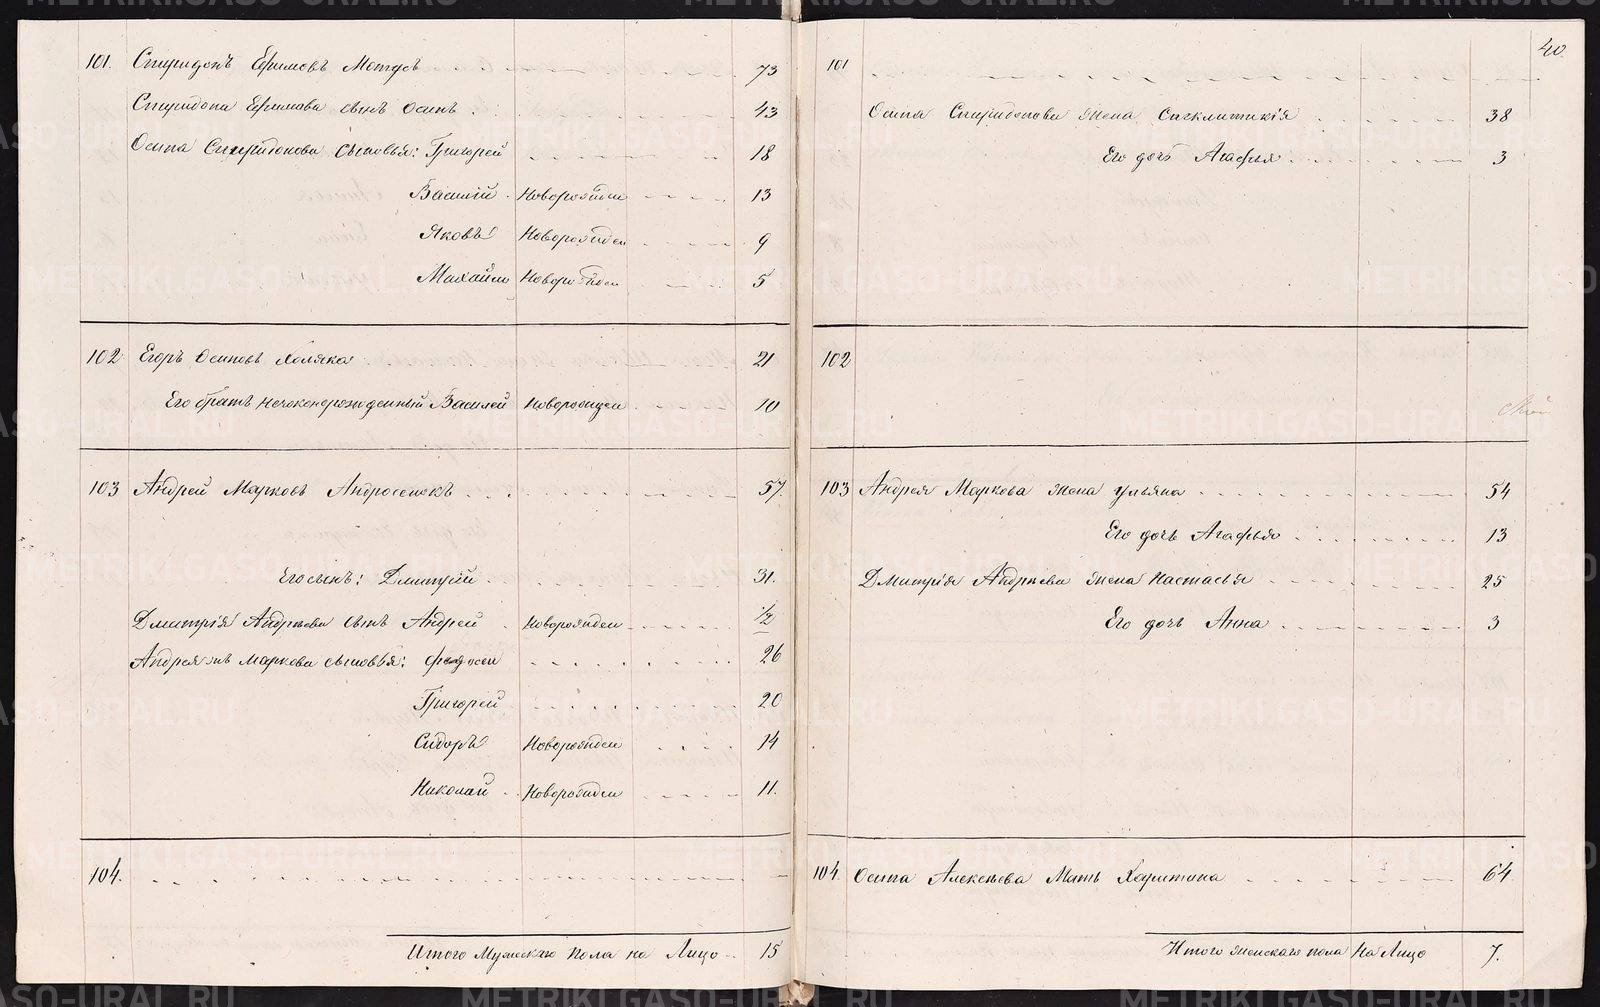 40.
101. Спиридонъ Ефимовъ Мотусъ 73
Спиридона Ефимова сынъ Осипъ 43
Осипа Спиридонова Сыновья: Григорей 18
Василій Новорожден 13
Яковъ Новорожден 9
Михайло Новорожден 5
102 Егоръ Осиповъ Холяка 21
Его братъ Василей Новорожден 10
103 Андрей Марковъ Андросенокъ 57.
Его сынъ: Дмитрій 31.
Дмитрія Андрѣева сынъ Андрей Новорожден 1/2
Андреяжъ Маркова сыновья: Федосей 26
Григорей 20
Сидоръ Новорожден 14
Николай Новорожден 11.
104.
Итого Мужескаго Пола на Лицо 15
101
Осипа Спиридонова жена 38
Его дочь Агафья 3
102
103 Андрея Маркова жена Ульяна 54
Его дочь Агафья 13
Дмитрія Андрѣева жена Настасья 25
Его дочь Анна 3
104. Осипа Алексѣева Мать Харитина 64
Итого женскаго пола На Лицо 7.
METRIKI.GASO-URAL.RU